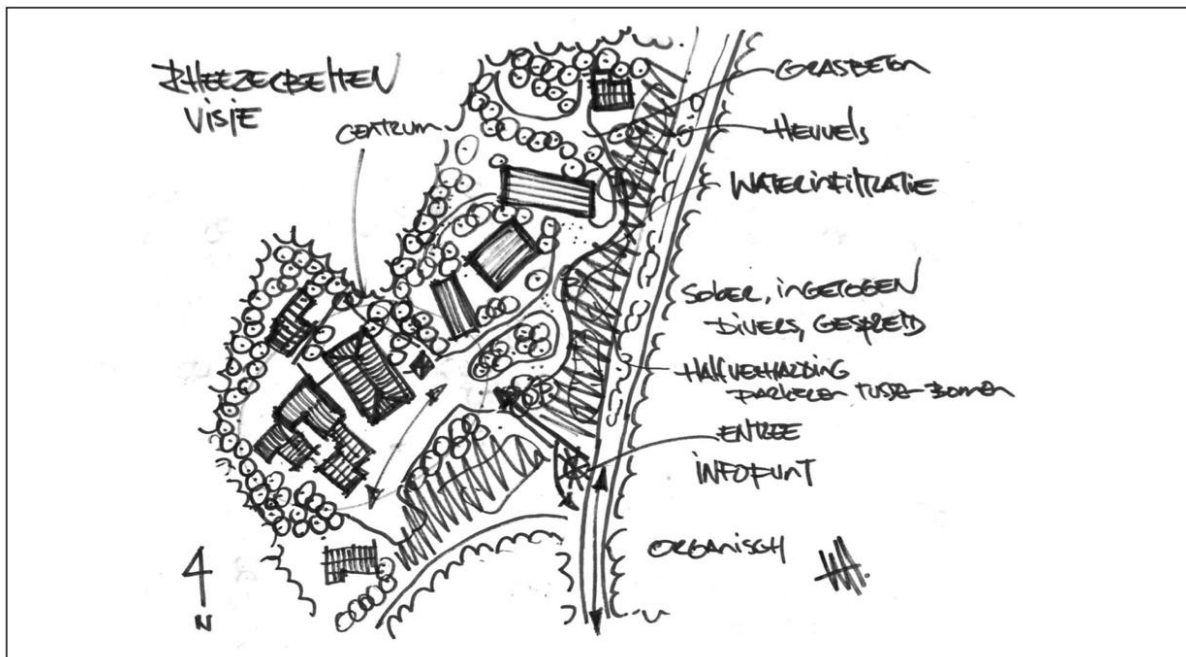 RHEEZERBELTEN
VISIE
CENTRUM
GRASBETON
HEUVELS
WATERINFILTRATIE
SOBER, INGETOGEN
DIVERS, GESPREID
HALFVERHARDING
PARKEREN TUSSEN BOMEN
ENTREE
INFOPUNT
ORGANISCH
N